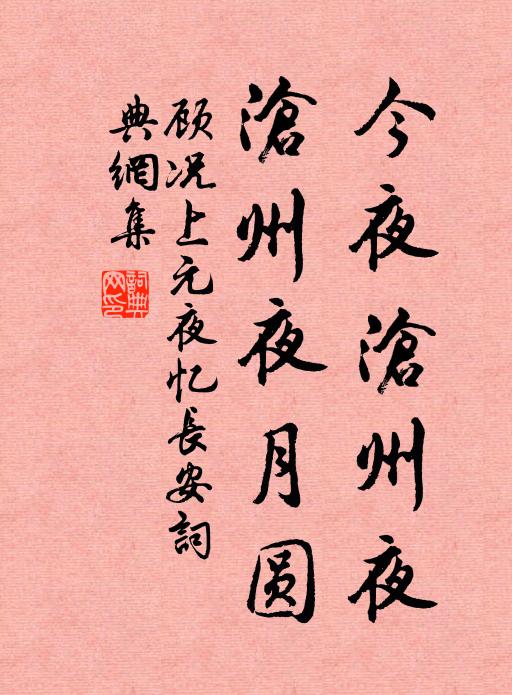 今夜滄州夜
滄州夜月圆
顾况上元夜忆長安詞
典網集
詞典网印